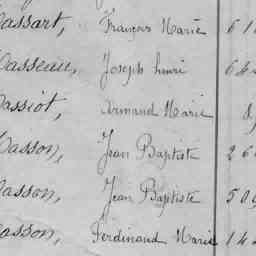 assart, François Marie 61
asseau, Joseph henri 64
assiot, Armand Marie 8
asson, Jean Baptiste 26
asson, Jean Baptiste 509
asson, Ferdinand Marie 14